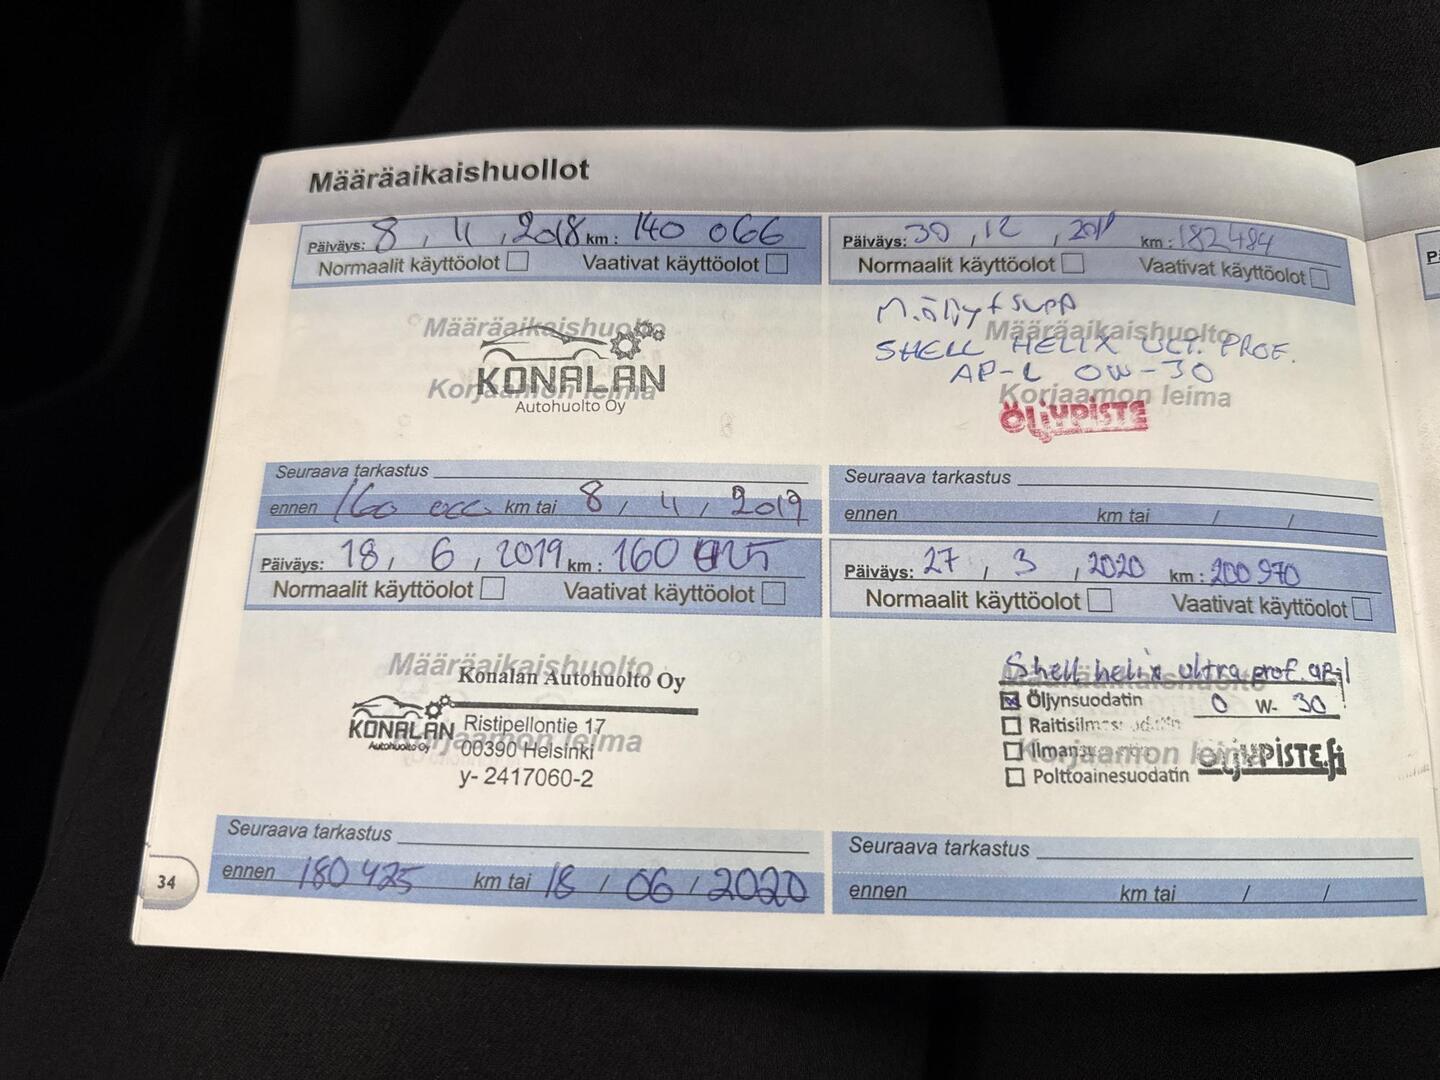 Määräaikaishuollot
Päiväys: 8 , 11 , 2018 km : 140 066
Normaalit käyttöolot Vaativat käyttöolot
Määräaikaishuolto
KONALAN
Korjaamon leima
Autohuolto Oy
Seuraava tarkastus
ennen 160 000 km tai 8 / 11 / 2019
Päiväys: 18 , 6 , 2019 km : 160 425
Normaalit käyttöolot Vaativat käyttöolot
Määräaikaishuolto
Konalan Autohuolto Oy
KONALAN
Autohuolto Oy
Ristipellontie 17
00390 Helsinki
Korjaamon leima
y- 2417060-2
Seuraava tarkastus
ennen 180 425 km tai 18 / 06 / 2020
34
Päiväys: 30 , 12 , km : 182484
Normaalit käyttöolot Vaativat käyttöolot
M.öljy + supp
Määräaikaishuolto
SHELL HELIX ULT. PROF.
AP-L 0W-30
Korjaamon leima
ÖLJYPISTE
Seuraava tarkastus
ennen km tai / /
Päiväys: 27 , 3 , 2020 km : 200 970
Normaalit käyttöolot Vaativat käyttöolot
Shell helix ultra prof. ap-l
Määräaikaishuolto
Öljynsuodatin 0 W- 30
Korjaamon leima
ÖLJYPISTE.fi
Polttoainesuodatin
Seuraava tarkastus
ennen km tai / /